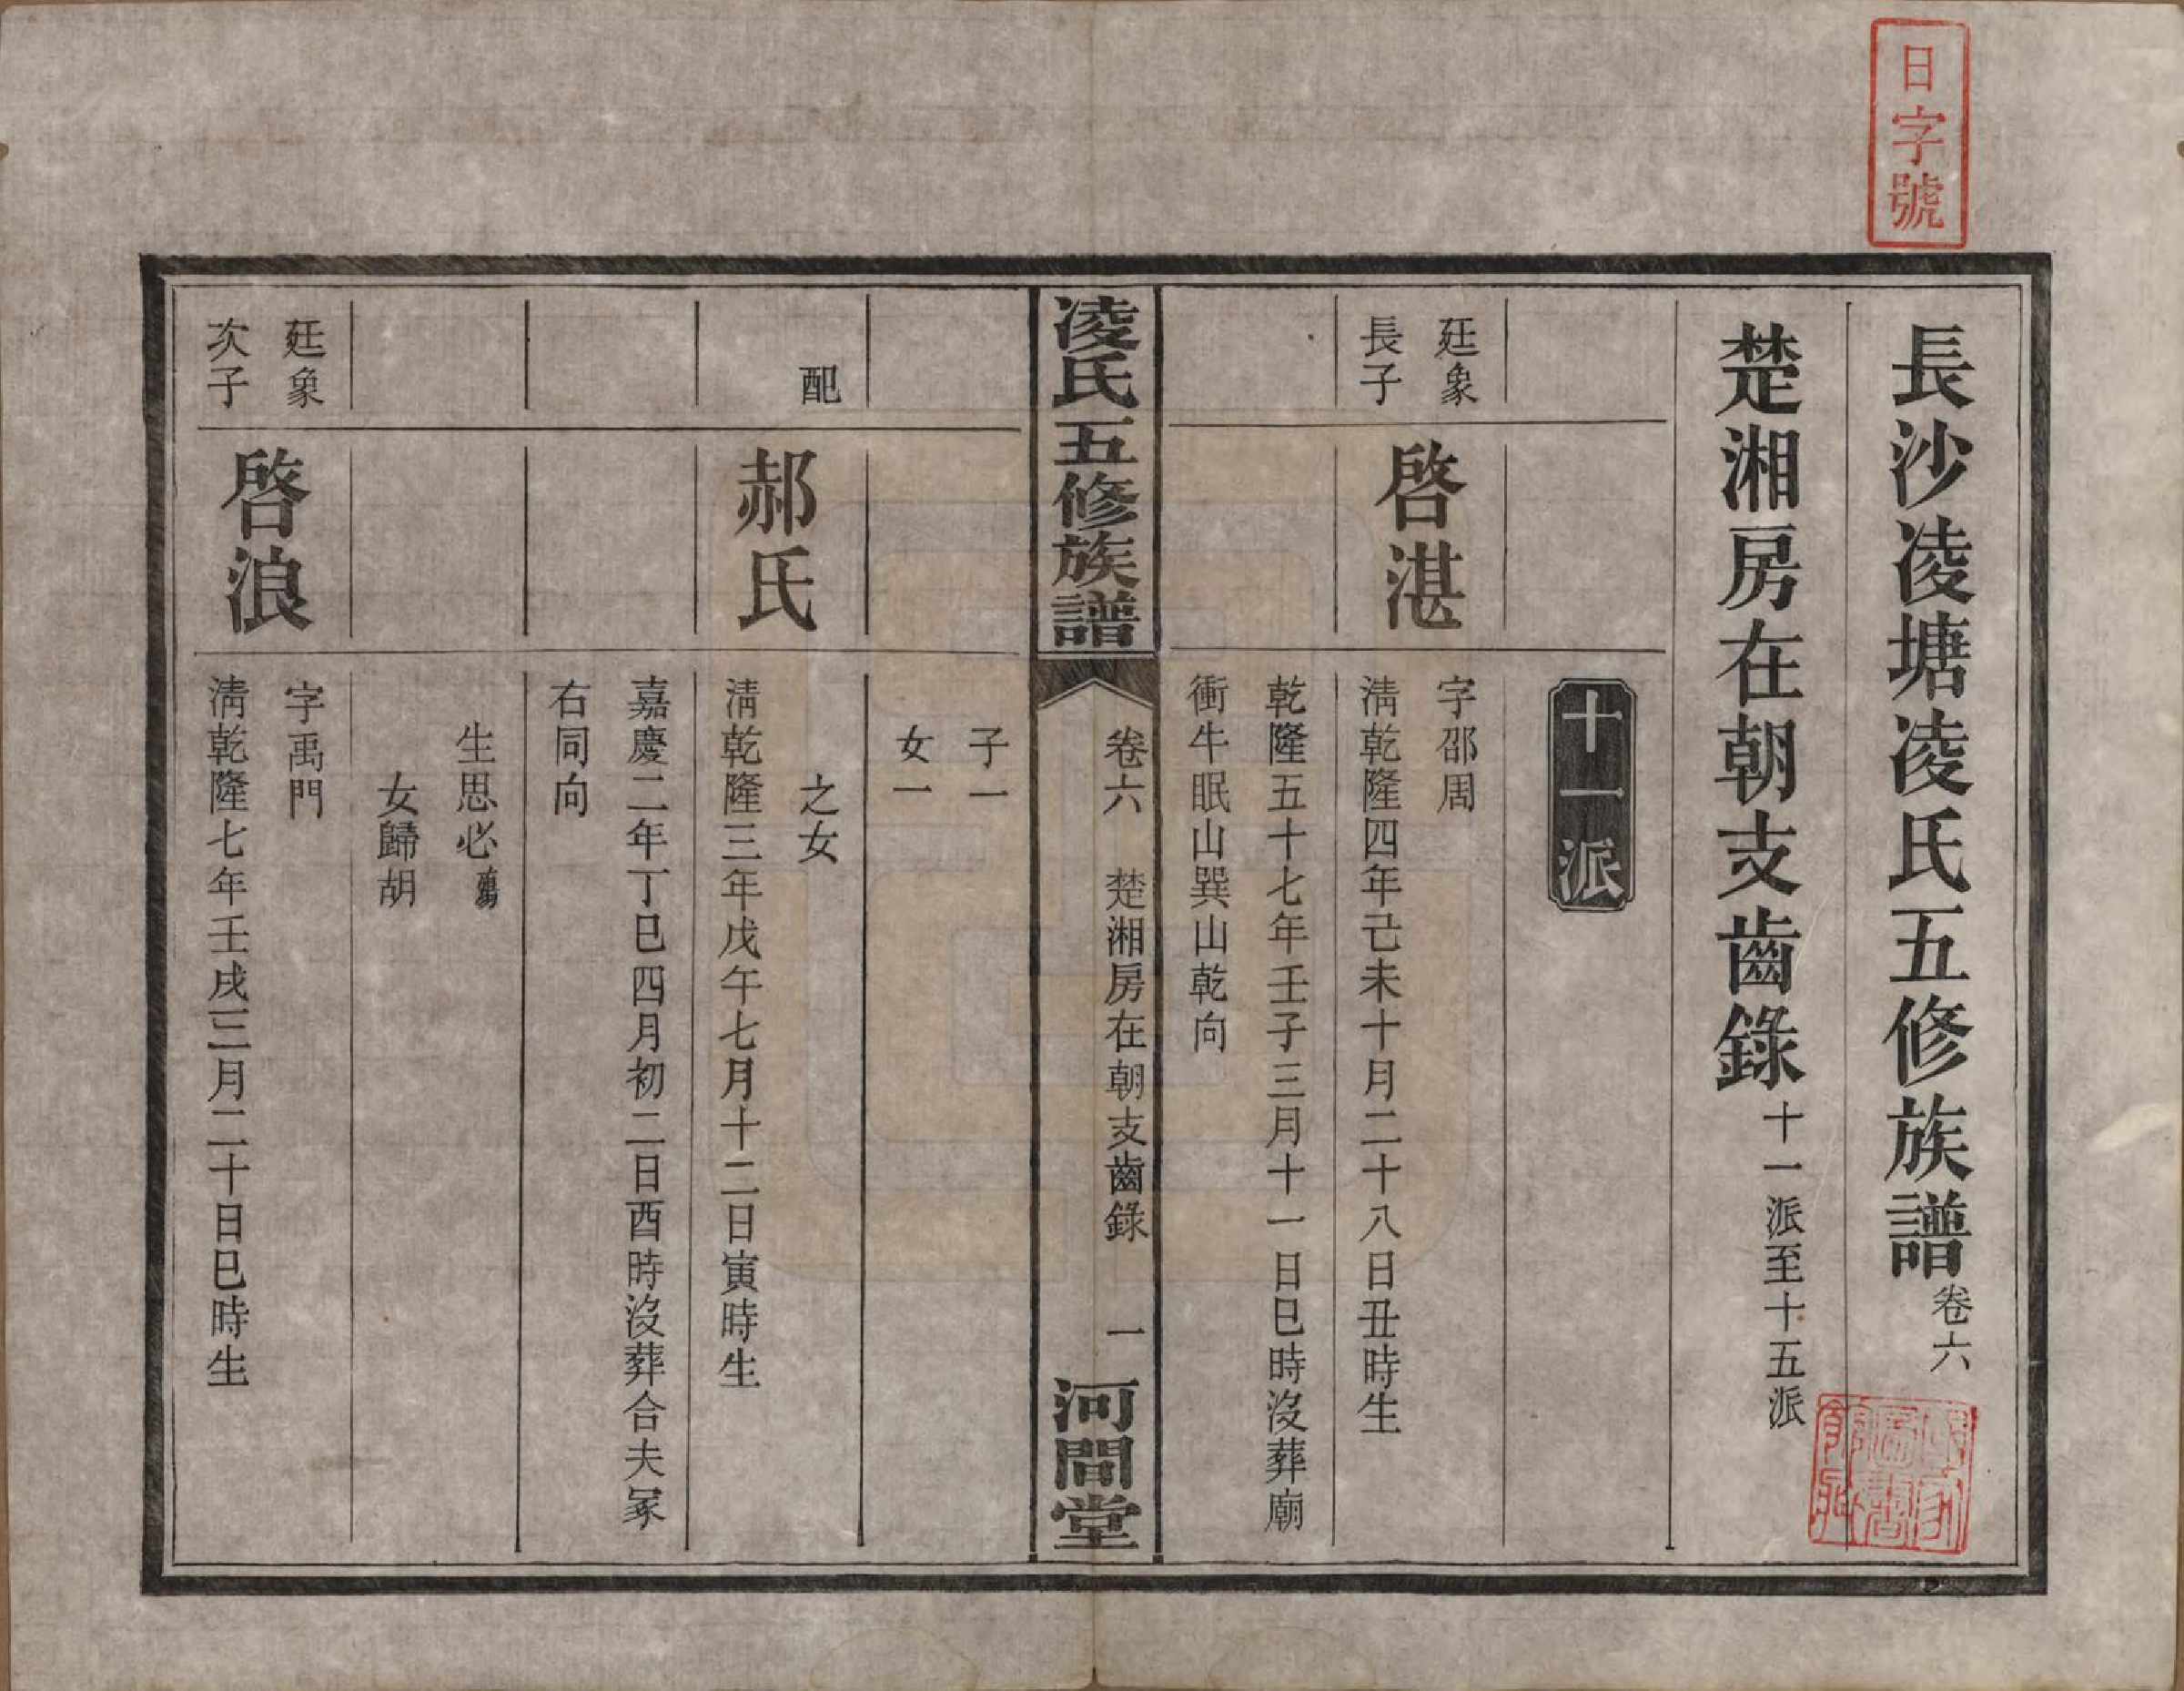 日字號
長沙凌塘凌氏五修族譜卷六
楚湘房在朝支齒錄十一派至十五派
十一派
廷象
長子
啓湛
字邵周
淸乾隆四年己未十月二十八日丑時生
乾隆五十七年壬子三月十一日巳時沒葬廟
衝牛眠山巽山乾向
凌氏五修族譜
卷六 楚湘房在朝支齒錄 一
河間堂
子一
女一
配
郝氏
之女
淸乾隆三年戊午七月十二日寅時生
嘉慶二年丁巳四月初二日酉時沒葬合夫冢
右同向
生思必
女歸胡
廷象
次子
啓浪
字禹門
淸乾隆七年壬戌三月二十日巳時生